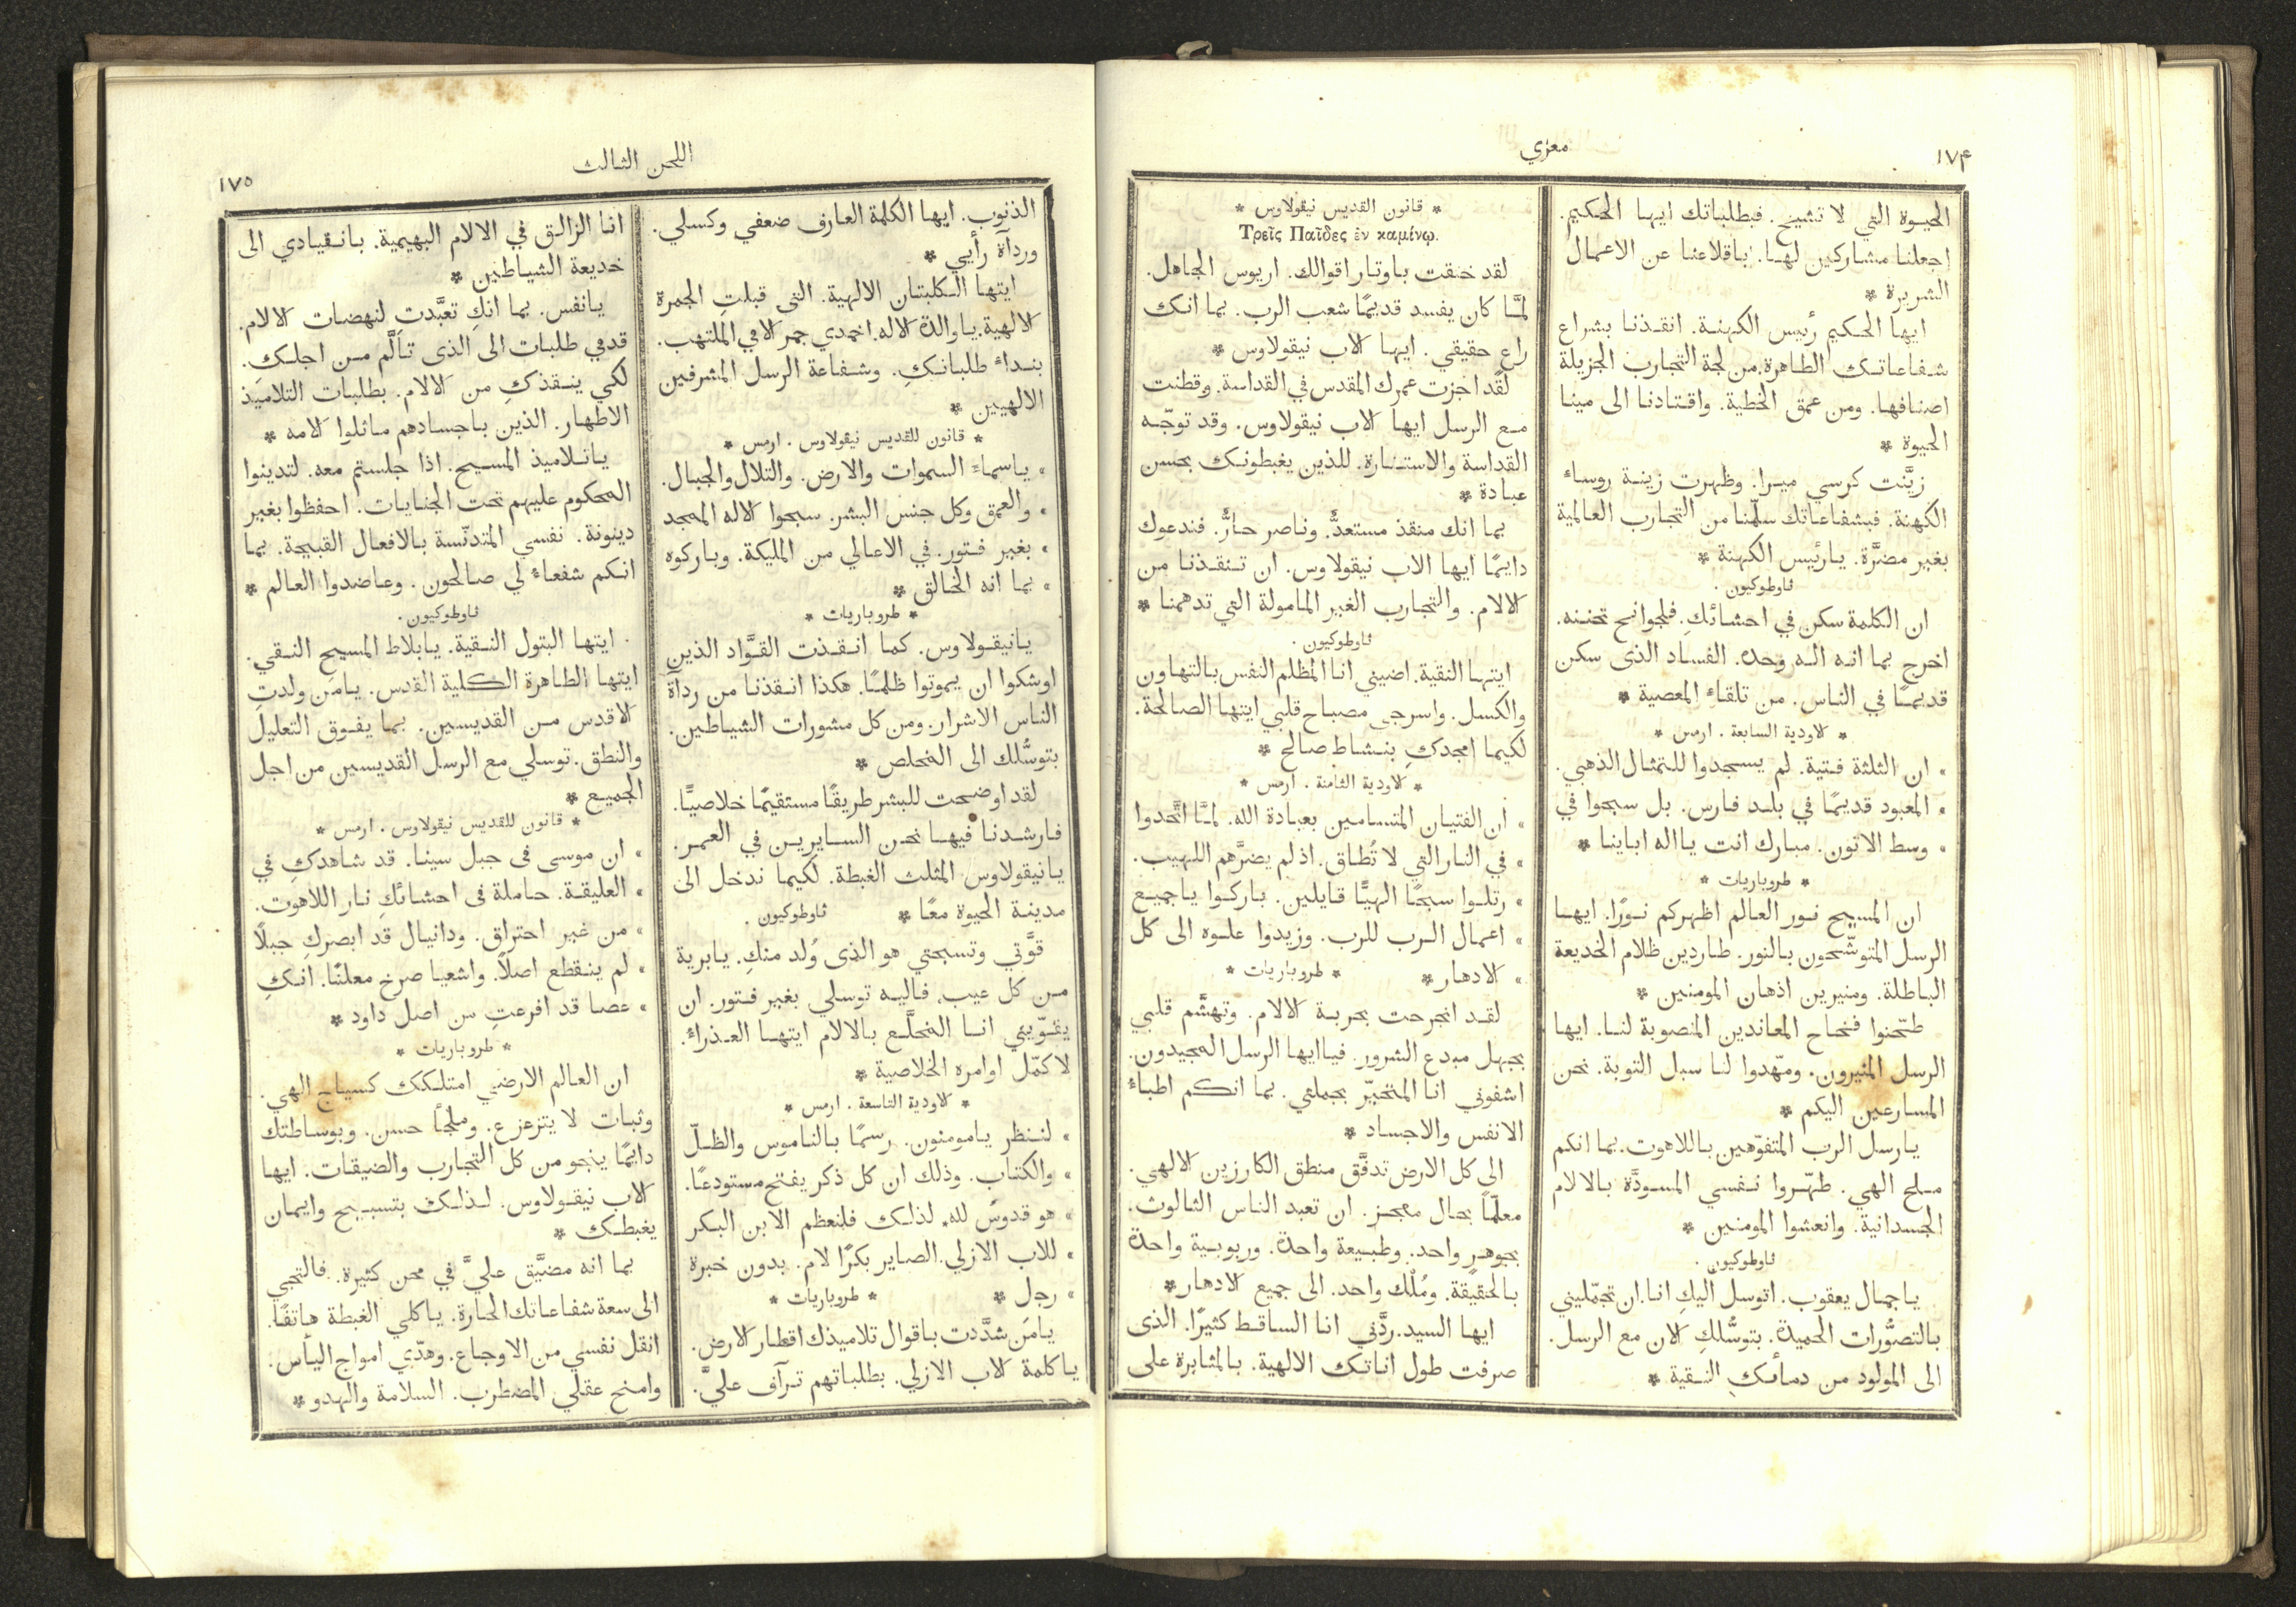 ١٧۴
معزي
الحيوة التي لا تشيخ. فبطلباتك ايها الحكيم.
اجعلنا مشاركين لها. باقلاعنا عن الاعمال
الشريرة *
ايها الحكيم رئيس الكهنة. انقذنا بشراع
شفاعاتك الطاهرة. من لجة التجارب الجزيلة
اصنافها. ومن عمق الخطية. واقتادنا الى مينا
الحيوة *
زيَّنت كرسي ميرا. وظهرت زينة روساء
الكهنة. فبشفاعاتك سلّمنا من التجارب العالمية
بغير مضرَّة. يارئيس الكهنة *
ثاوطوكيون.
ان الكلمة سكن في احشائكِ. فلجوانح تحننه.
اخرج بما انه اله وحده. الفساد الذى سكن
قديمًا في الناس. من تلقاء المعصية *
* الاودية السابعة. ارمس *
» ان الثلثة فتية. لم يسجدوا للتمثال الذهبي.
» المعبود قديمًا في بلد فارس. بل سبحوا في
» وسط الاتون. مبارك انت يااله اباينا *
* طروباريات *
ان المسيح نور العالم اظهركم نورًا. ايها
الرسل المتوشّحون بالنور. طاردين ظلام الخديعة
الباطلة. ومنيرين اذهان المومنين *
طحّنوا فخاح المعاندين المنصوبة لنا. ايها
الرسل المنيرون. ومهّدوا لنا سبل التوبة. نحن
المسارعين اليكم *
يارسل الرب المتفوّهين باللاهوت. بما انكم
ملح الهي. طهّروا نفسي المسودَّة بالالام
الجسدانية. وانعشوا المومنين *
ثاوطوكيون.
ياجمال يعقوب. اتوسل اليكِ انا. ان تجمّليني
بالتصوُّرات الحميدة. بتوسُّلكِ الان مع الرسل.
الى المولود من دمائكِ النقية *
* قانون القديس نيقولاوس *
Τρεῖς Παῖδες ἐν καμίνῳ.
لقد خنقت باوتار اقوالك. اريوس الجاهل.
لمَّا كان يفسد قديمًا شعب الرب. بما انك
راعٍ حقيقي. ايها الاب نيقولاوس *
لقد اجزت عمرك المقدس في القداسة. وقطنت
مع الرسل ايها الاب نيقولاوس. وقد توجّه
القداسة والاستنارة. للذين يغبطونك بحسن
عبادة *
بما انك منقذ مستعدٌّ. وناصر حارٌّ. فندعوك
دايمًا ايها الاب نيقولاوس. ان تنقذنا من
الالام. والتجارب الغير المامولة التي تدهمنا *
ثاوطوكيون.
ايتها النقية. اضيني انا المظلم النفس بالتهاون
والكسل. واسرجي مصباح قلبي ايتها الصالحة.
لكيما امجدكِ بنشاط صالح *
* الاودية الثامنة. ارمس *
» ان الفتيان المتسامين بعبادة الله. لمَّا اتَّحدوا
» في النار التي لا تُطاق. اذ لم يضرَّهم اللهيب.
» رتلوا سبحًا الهيًّا قايلين. باركوا ياجميع
» اعمال الرب للرب. وزيدوا علوه الى كل
» الادهار * * طروباريات *
لقد انجرحت بحربة الالام. وتهشَّم قلبي
بجهل مبدع الشرور. فيا ايها الرسل المجيدون.
اشفوني انا المتحيّر بجملتي. بما انكم اطباء
الانفس والاجساد *
الى كل الارض تدفَّق منطق الكارزين الالهي.
معلّمًا بحال معجز. ان تعبد الناس الثالوث.
بجوهرٍ واحد. وطبيعة واحدة. وربوبية واحدة
بالحقيقة. ومُلْك واحد. الى جميع الادهار *
ايها السيد. ردَّني انا الساقط كثيرًا. الذى
صرفت طول اناتك الالهية. بالمثابرة على
اللحن الثالث
١٧٥
الذنوب. ايها الكلمة العارف ضعفي وكسلي.
ورداَة رأيي *
ايتها الكلبتان الالهية. التي قبلتِ الجمرة
الالهية. ياوالدة الاله. اخمدي جمر الامي الملتهب.
بنداء طلباتكِ. وشفاعة الرسل المشرفين
الالهيين *
* قانون للقديس نيقولاوس. ارمس *
» ياسماء السموات والارض. والتلال والجبال.
» والعمق وكل جنس البشر. سبحوا الاله الممجد
» بغير فتور. في الاعالي من المليكة. وباركوه
» بما انه الخالق *
* طروباريات *
يانيقولاوس. كما انقذت القوَّاد الذين
اوشكوا ان يموتوا ظلمًا. هكذا انقذنا من رداَة
الناس الاشرار. ومن كل مشورات الشياطين.
بتوسُّلك الى المخلص *
لقد اوضحت للبشر طريقًا مستقيمًا خلاصيًّا.
فارشدنا فيها نحن السايرين في العمر.
يانيقولاوس المثلث الغبطة. لكيما ندخل الى
مدينة الحيوة معًا * ثاوطوكيون.
قوَّتي وتسبحتي هو الذى وُلد منكِ. يابرية
من كل عيب. فاليه توسلي بغير فتور. ان
يقوّيني انا المخلَّع بالالام ايتها العذراء.
لاكمّل اوامره الخلاصية *
* الاودية التاسعة. ارمس *
» لننظر يامومنون. رسمًا بالناموس والظلّ
» والكتاب. وذلك ان كل ذكر يفتح مستودعًا.
» هو قدوس لله. لذلك فلنعظم الابن البكر
» للاب الازلي. الصاير بكرًا لام. بدون خبرة
» رجل * * طروباريات *
يامَن شدَّدت باقوال تلاميذك اقطار الارض.
ياكلمة الاب الازلي. بطلباتهم ترآف عليَّ.
انا الزالق في الالام البهيمية. بانقيادي الى
خديعة الشياطين *
يانفس. بما انكِ تعبَّدتِ لنهضات الالام.
قدمي طلبات الى الذى تألَّم من اجلكِ.
لكي ينقذكِ من الالام. بطلبات التلاميذ
الاطهار. الذين باجسادهم ماثلوا الامه *
ياتلاميذ المسيح. اذا جلستم معه. لتدينوا
المحكوم عليهم تحت الجنايات. احفظوا بغير
دينونة. نفسي المتدنّسة بالافعال القبيحة. بما
انكم شفعاء لي صالحون. وعاضدوا العالم *
ثاوطوكيون.
ايتها البتول النقية. يابلاط المسيح النقي.
ايتها الطاهرة الكلية القدس. يامَن ولدتِ
الاقدس من القديسين. بما يفوق التعليل
والنطق. توسلي مع الرسل القديسين من اجل
الجميع *
* قانون للقديس نيقولاوس. ارمس *
» ان موسى فى جبل سينا. قد شاهدكِ في
» العليقة. حاملة فى احشائكِ نار اللاهوت.
» من غير احتراق. ودانيال قد ابصركِ جبلًا
» لم ينقطع اصلًا. واشعيا صرخ معلنًا. انكِ
» عصا قد افرعتِ من اصل داود *
* طروباريات *
ان العالم الارضي امتلكك كسياج الهي.
وثبات لا يتزعزع. وملجأ حسن. وبوساطتك
دايمًا ينجو من كل التجارب والضيقات. ايها
الاب نيقولاوس. لذلك بتسبيح وايمان
يغبطك *
بما انه مضيَّق عليَّ في محن كثيرة. فالتجي
الى سعة شفاعاتك الحارة. ياكلي الغبطة هاتفًا.
انقل نفسي من الاوجاع. وهدّي امواج اليأس.
وامنح عقلي المضطرب. السلامة والهدو *